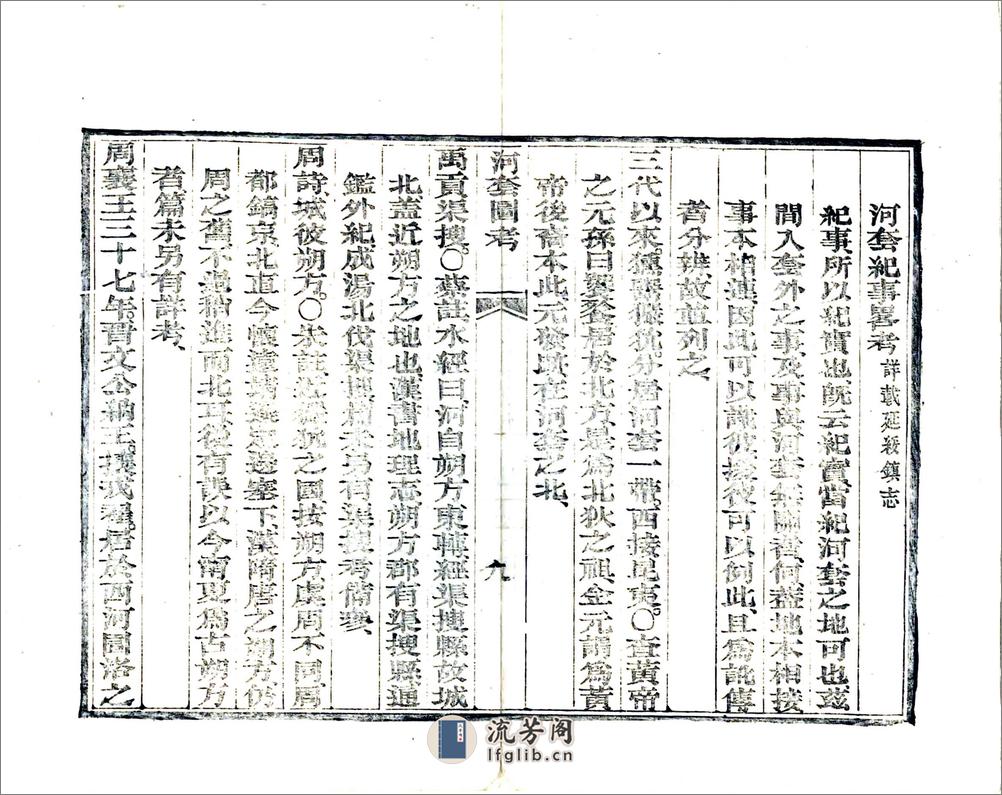 河套紀事畧考 詳載延綏鎮志
紀事所以紀實也既云紀實當紀河套之地可也茲
間入套外之事及事與河套無關者何蓋地本相接
事本相連因此可以識彼按彼可以例此且為訛傳
者分辨故並列之
三代以來獯鬻獫狁分居河套一帶西接昆夷〇查黃帝
之元孫曰獯鬻居於北方是為北狄之祖金元謂為黃
帝後裔本此元發跡在河套之北
河套圖考
九
禹貢渠搜〇蔡註水經曰河自朔方東轉經渠搜縣故城
北蓋近朔方之地也漢書地理志朔方郡有渠搜縣通
鑑外紀成湯北伐渠搜篇末另有渠搜考備覽
周詩城彼朔方〇朱註近獫狁之國按朔方虞周不同周
都鎬京北直今懷遠靖邊定邊塞下漢隋唐之朔方仍
周之舊不過稍進而北耳後有誤以今甯夏為古朔方
者篇末另有詳考
周襄王三十七年晉文公納王攘戎翟居於西河圁洛之
流芳阁
lfglib.cn